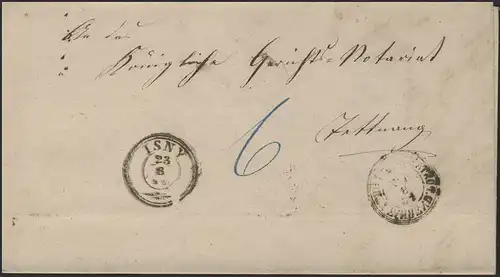 An das
Königliche Gerichts-Notariat
Tettnang
6
ISNY
23
8